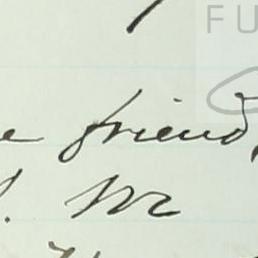 FU
e friend,
. We